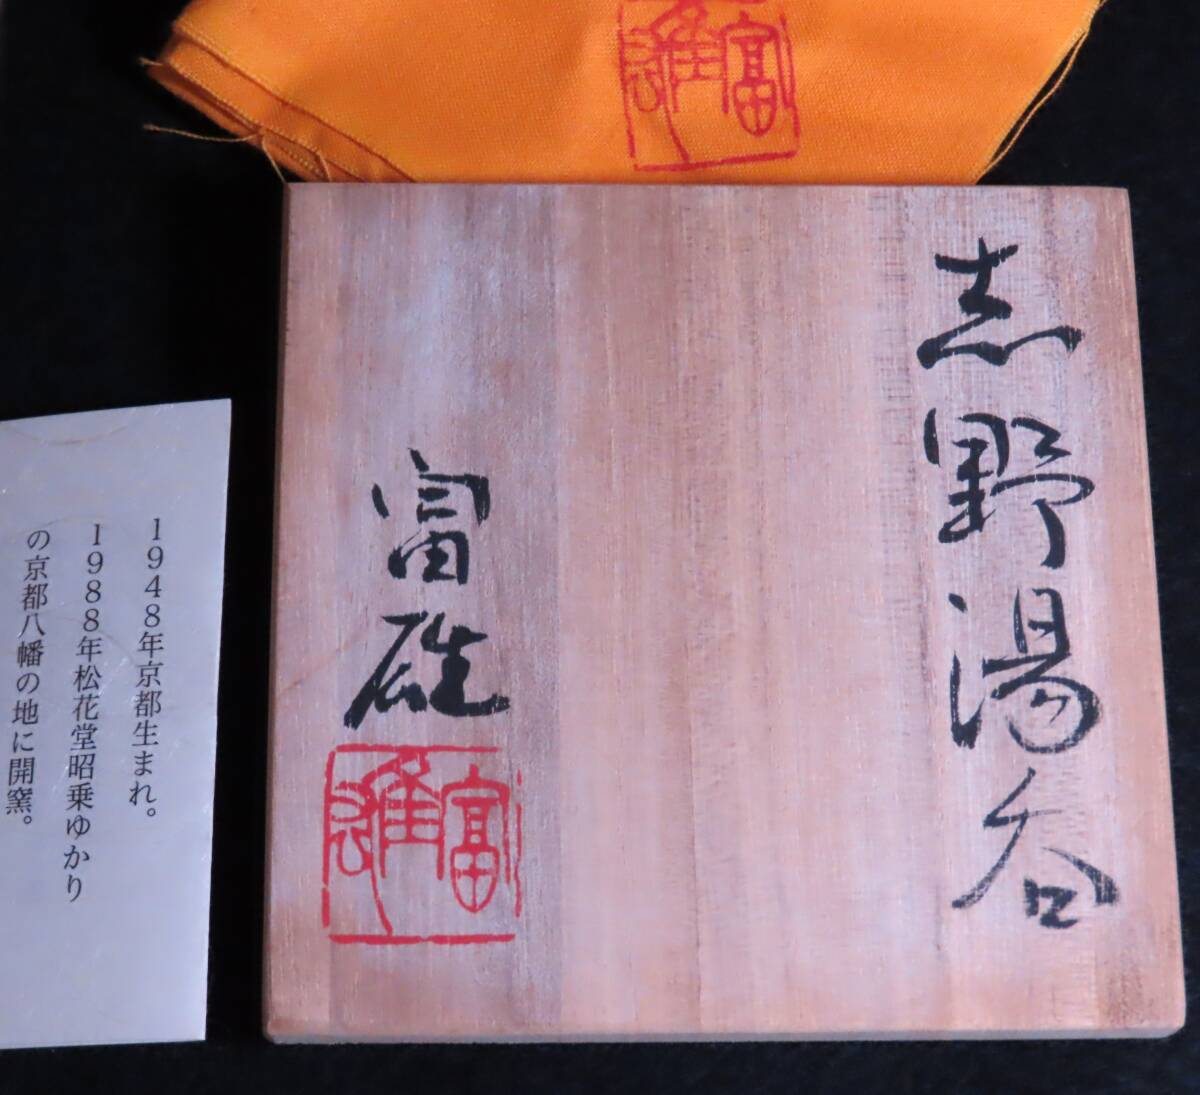 富雄
志野湯呑
富雄
富雄
1948年京都生まれ。
1988年松花堂昭乗ゆかり
の京都八幡の地に開窯。